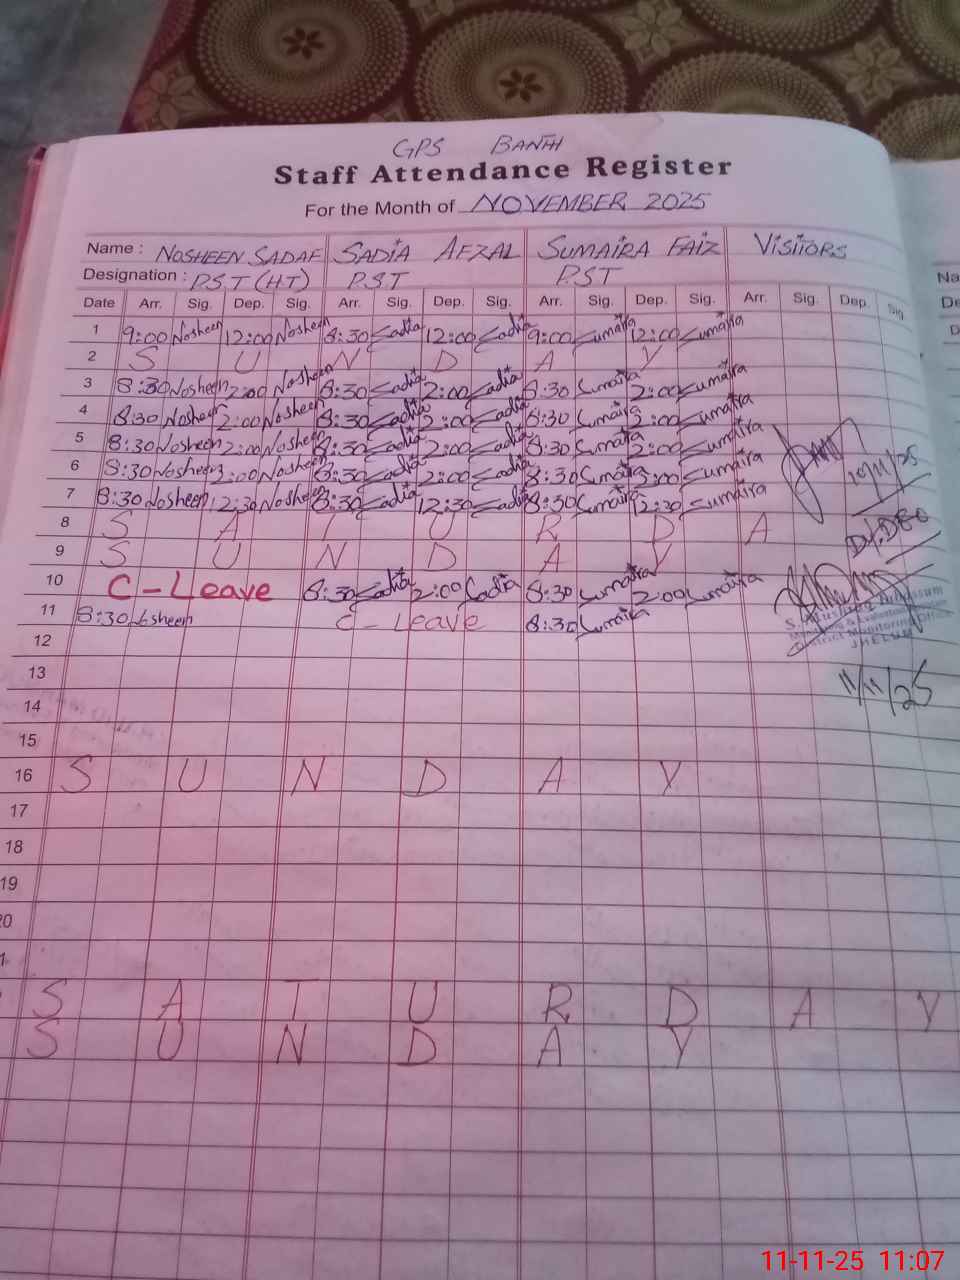 GPS BANTH
Staff Attendance Register
For the Month of NOVEMBER 2025
Name : NOSHEEN SADAF SADIA AFZAL SUMAIRA FAIZ VISITORS
Designation : P.S.T (H.T) P.S.T P.S.T
Date Arr. Sig. Dep. Sig. Arr. Sig. Dep. Sig. Arr. Sig. Dep. Sig. Arr. Sig. Dep. Sig.
1 9:00 Nosheen 12:00 Nosheen 8:30 Sadia 12:00 Sadia 9:00 Sumaira 12:00 Sumaira
2 S U N D A Y
3 8:30 Nosheen 2:00 Nosheen 8:30 Sadia 2:00 Sadia 8:30 Sumaira 2:00 Sumaira
4 8:30 Nosheen 2:00 Nosheen 8:30 Sadia 2:00 Sadia 8:30 Sumaira 2:00 Sumaira
5 8:30 Nosheen 2:00 Nosheen 8:30 Sadia 2:00 Sadia 8:30 Sumaira 2:00 Sumaira
6 8:30 Nosheen 2:00 Nosheen 8:30 Sadia 2:00 Sadia 8:30 Sumaira 2:00 Sumaira
7 8:30 Nosheen 12:30 Nosheen 8:30 Sadia 12:30 Sadia 8:30 Sumaira 12:30 Sumaira
10/11/25
8 S A T U R D A
DY.DEO
9 S U N D A Y
10 C-Leave 8:30 Sadia 2:00 Sadia 8:30 Sumaira 2:00 Sumaira
11 8:30 Nosheen C-Leave 8:30 Sumaira
District Monitoring Office
JHELUM
12
11/11/25
13
14
15
16 S U N D A Y
17
18
19
20
S A T U R D A Y
S U N D A Y
11-11-25 11:07